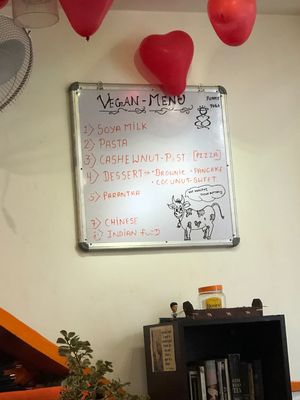 VEGAN-MENU
1) SOYA MILK
2) PASTA
3) CASHEWNUT-PIST [PIZZA]
4) DESSERT → •BROWNIE •PANCAKE
•COCUNUT-GUFFT
5) PARANTHA
7) CHINESE
INDIAN FOOD